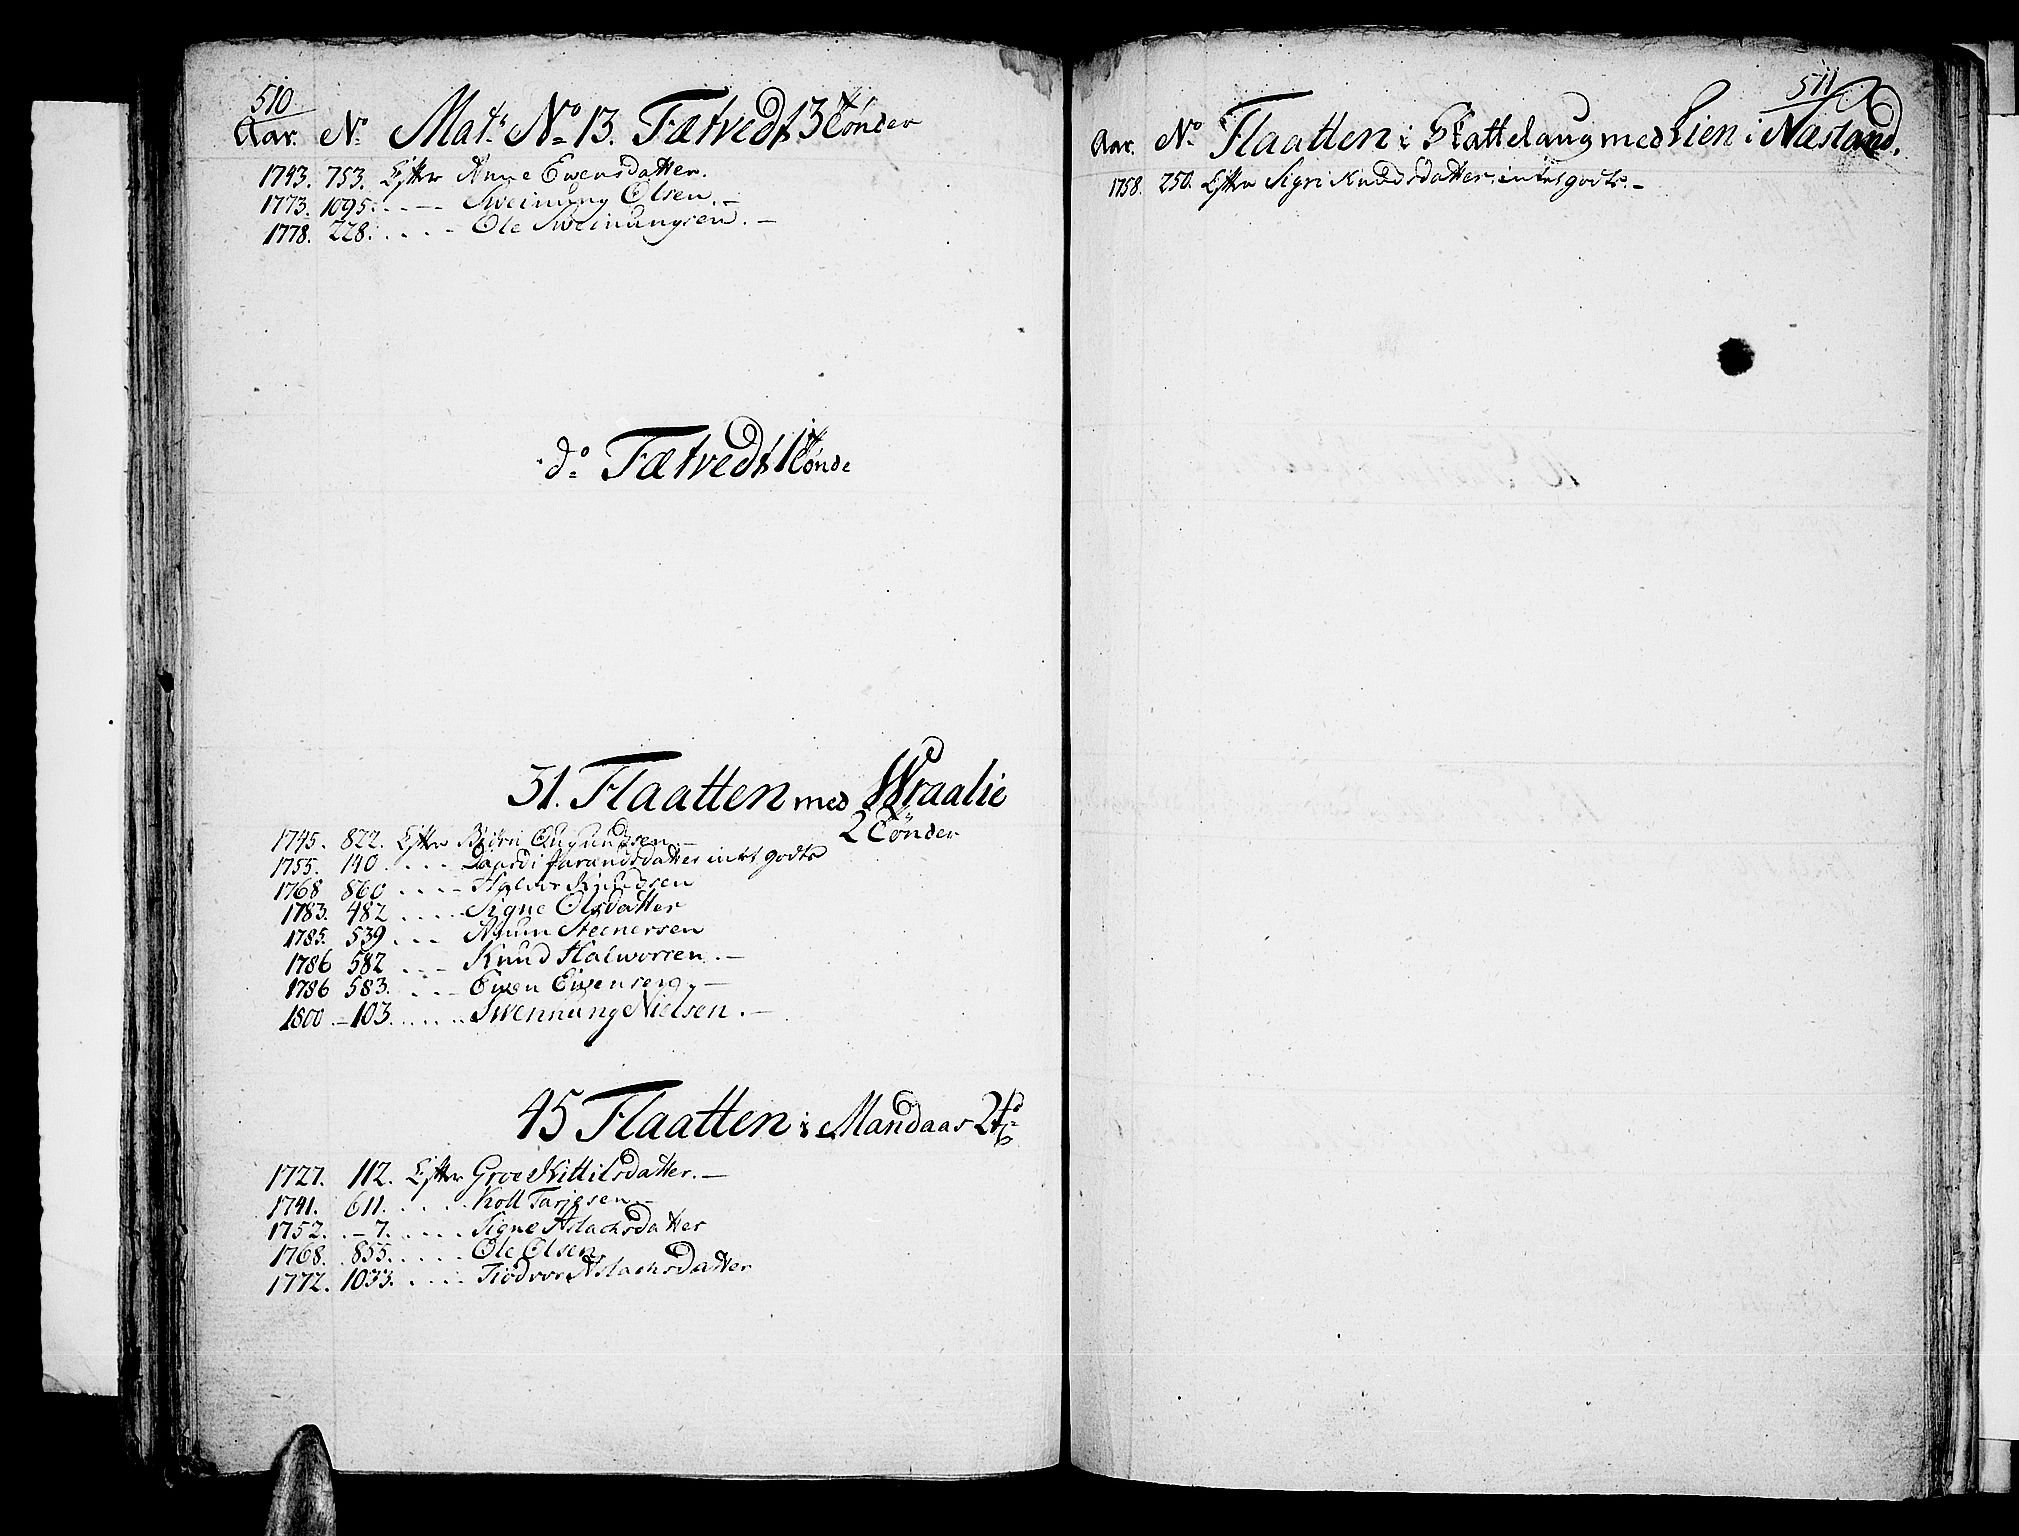 510
Aar. No Mat: No 13. Fætvedt 3 Tønder
1743. 753. Efter Anne Ewensdatter.
1773. 1095. . - - Sweinung Olsen. -
1778. 228. . . . - Ole Sweinungsen. -
do Fætvedt 1 Tønde
31. Flaatten med Wraalie
2 Tønder
1745. 822. Efter Biørn Ougundsen -
1755. 140. . . . Taransdatter intet godts
1768 860 . . . - Halvor Knudsen
1783. 482 . . . . Signe Olsdatter
1785. 539 . . - Steenersen
1786 582 . . - Knud Halworsen. -
1786 583. . . - Ewen Ewensen. -
1800 . - 103. . . . . . Swennung Nielsen. -
45 Flaatten i Mandaas 2
1727. 112. Efter Groe Kittilsdatter. -
1741. 611. . . . . Koll Tarjesen. -
1752. . - 7. . . . . . Signe Aslachsdatter
1768. 855. . . . . . Ole Olsen
1772. 1033. . . . . . Aslachsdatter
511
Aar. No Flaatten i Skattelaug med Lien i Næsland.
1758. 250. Efter Sigri Knudsdatter. intet godts. -